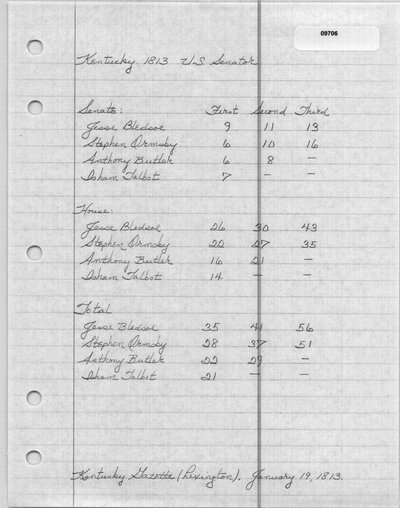 09706
Kentucky 1813 U.S. Senator
Senate: First Second Third
Jesse Bledsoe 9 11 13
Stephen Ormsby 6 10 16
Anthony Butler 6 8 —
Isham Talbot 7 — —
House:
Jesse Bledsoe 26 30 43
Stephen Ormsby 22 27 35
Anthony Butler 16 21 —
Isham Talbot 14 — —
Total
Jesse Bledsoe 35 41 56
Stephen Ormsby 28 37 51
Anthony Butler 22 29 —
Isham Talbot 21 — —
Kentucky Gazette (Lexington). January 19, 1813.